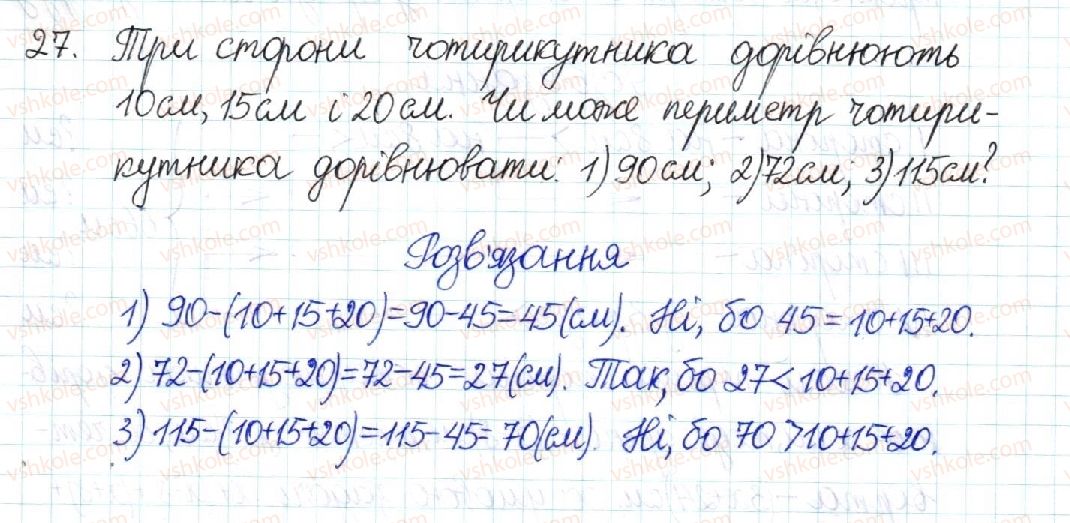 27. Три сторони чотирикутника дорівнюють
10см, 15см і 20см. Чи може периметр чотири-
кутника дорівнювати: 1) 90см; 2) 72см; 3) 115см?
Розв'язання
1) 90-(10+15+20)=90-45=45(см). Ні, бо 45=10+15+20.
2) 72-(10+15+20)=72-45=27(см). Так, бо 27<10+15+20.
3) 115-(10+15+20)=115-45=70(см). Ні, бо 70>10+15+20.
vshkole.com